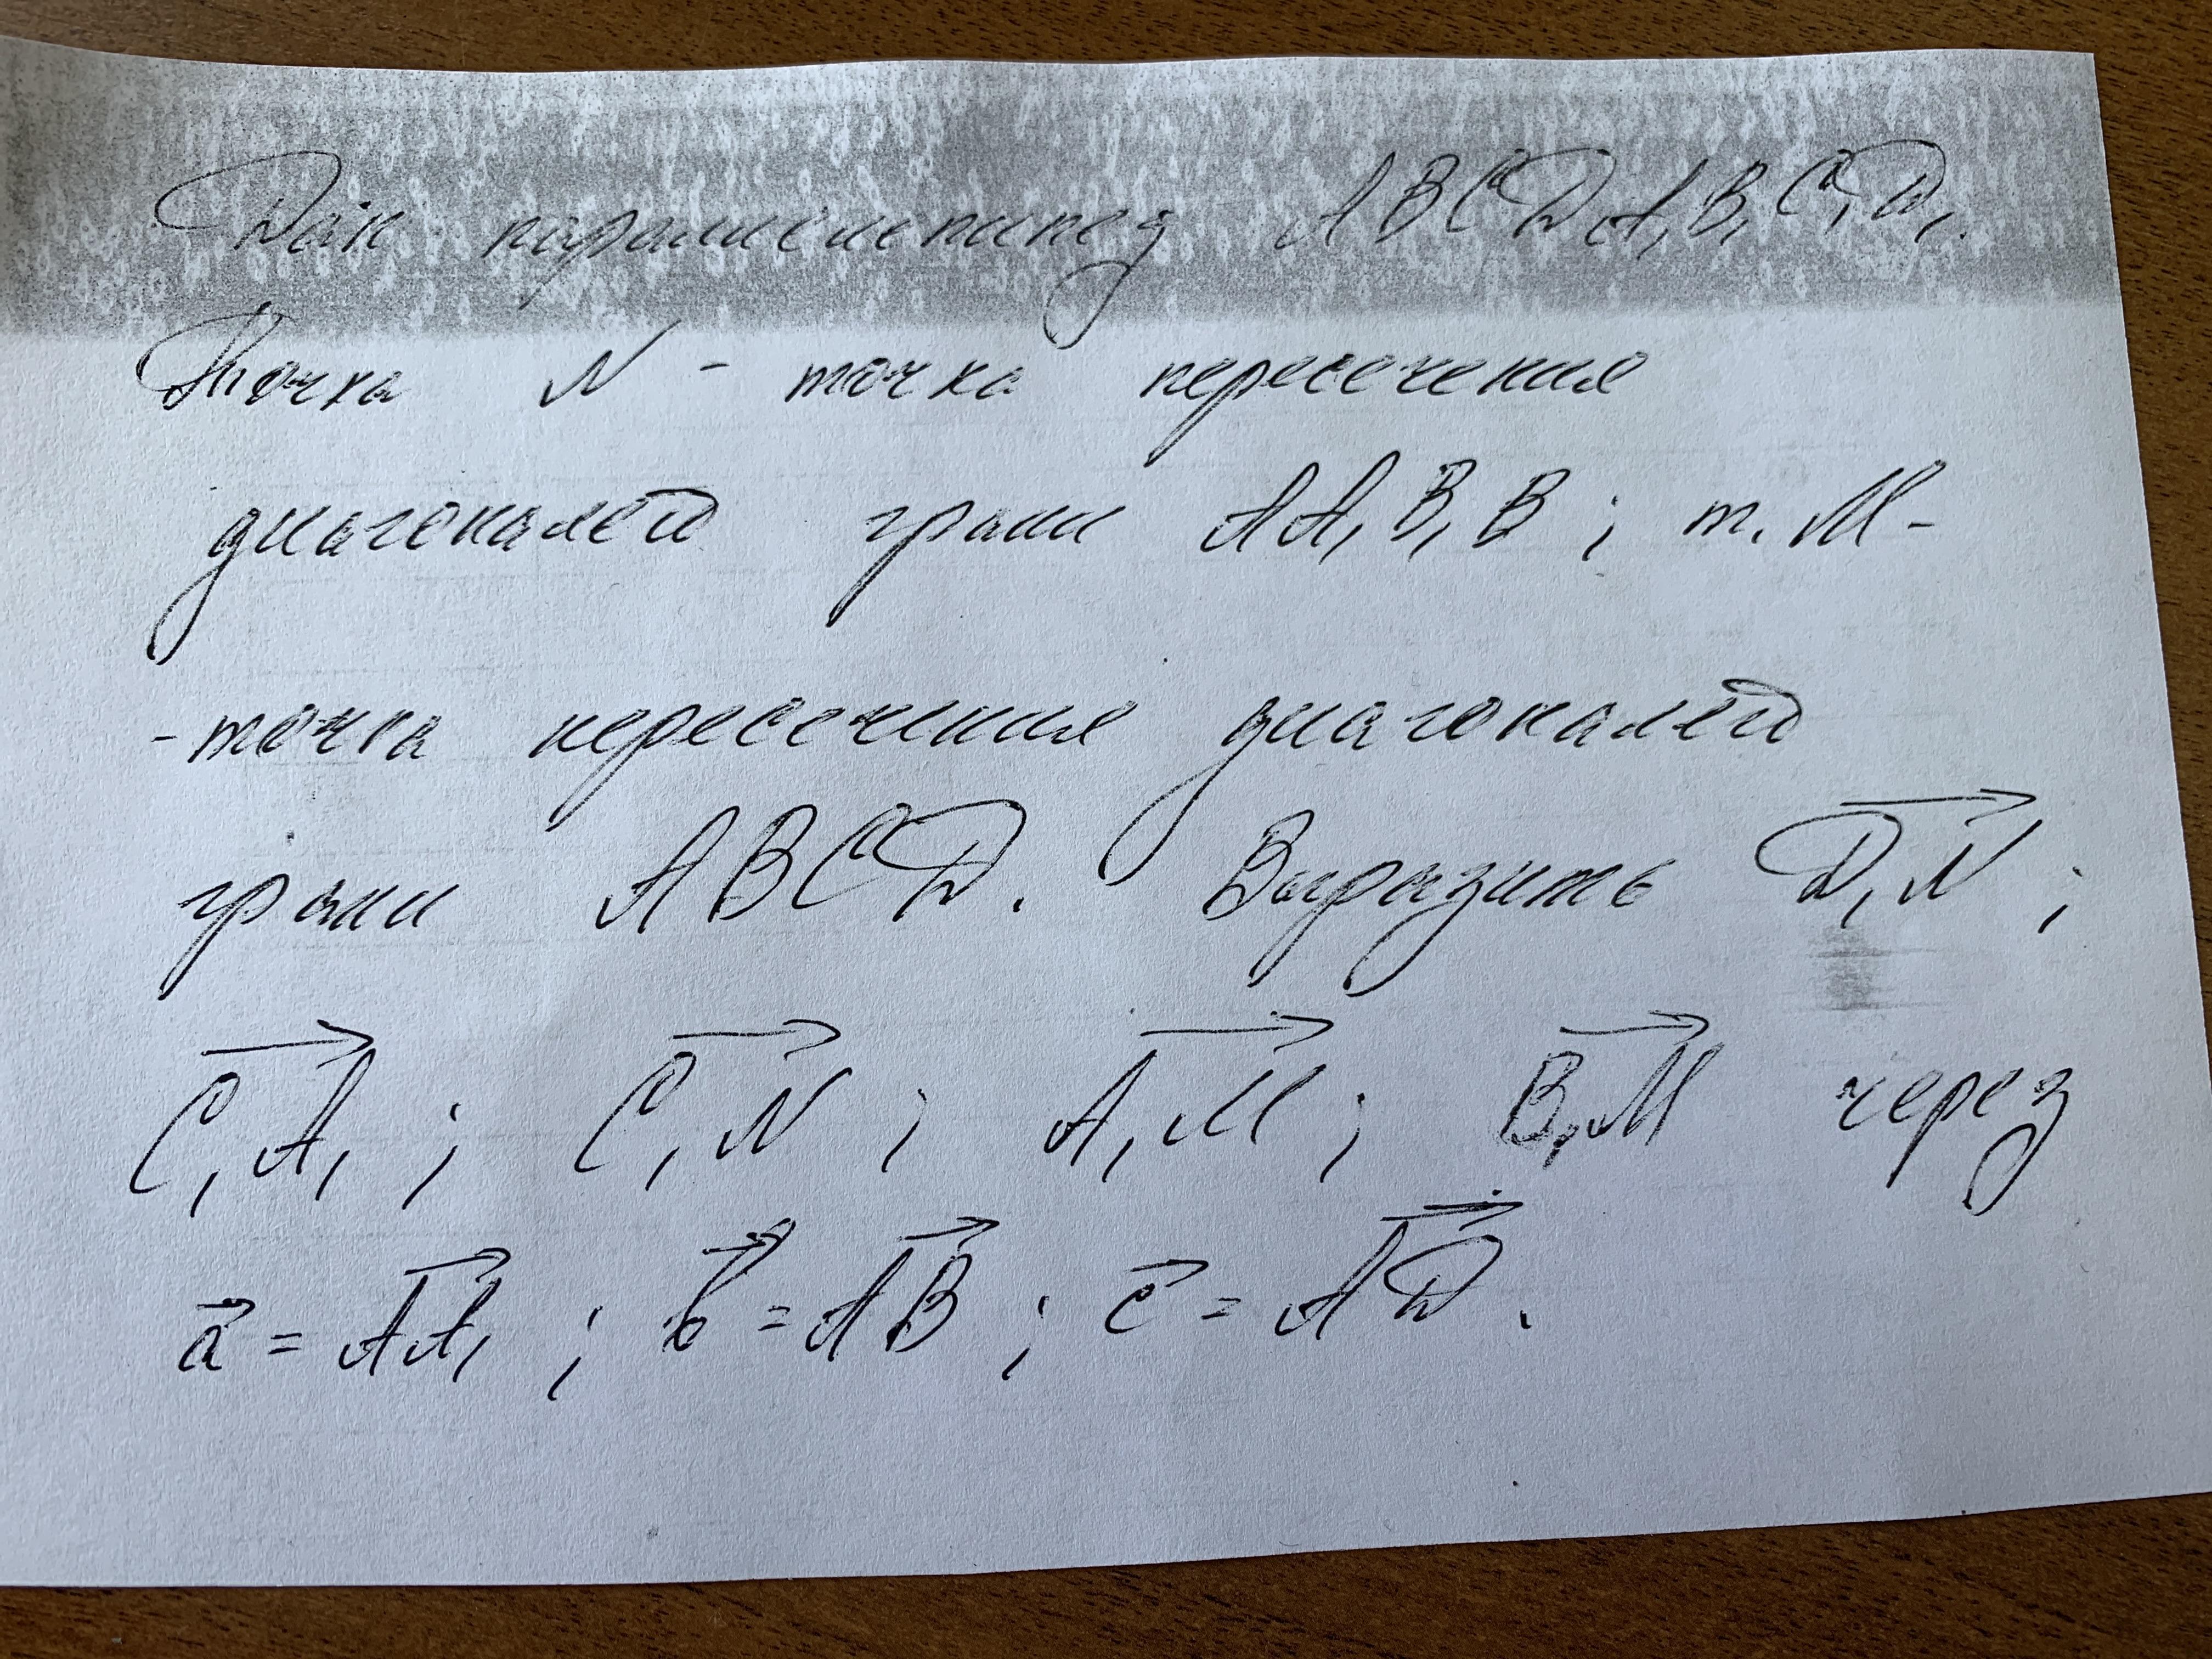 Дан параллелепипед ABCDA₁B₁C₁D₁.
Точка N - точка пересечения
диагоналей грани AA₁B₁B ; т. M -
- точка пересечения диагоналей
грани ABCD. Выразить D₁N⃗ ;
C₁A₁⃗ ; C₁N⃗ ; A₁M⃗ ; B₁M⃗ через
a⃗ = AA₁⃗ ; b⃗ = AB⃗ ; c⃗ = AD⃗ .